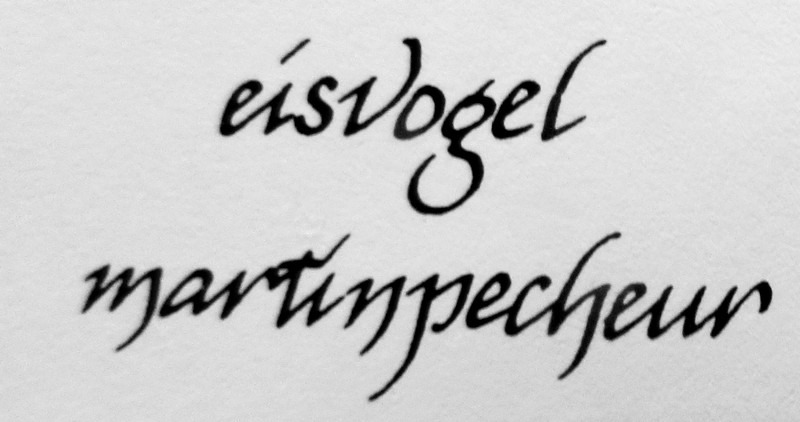 eisvogel
martinpecheur